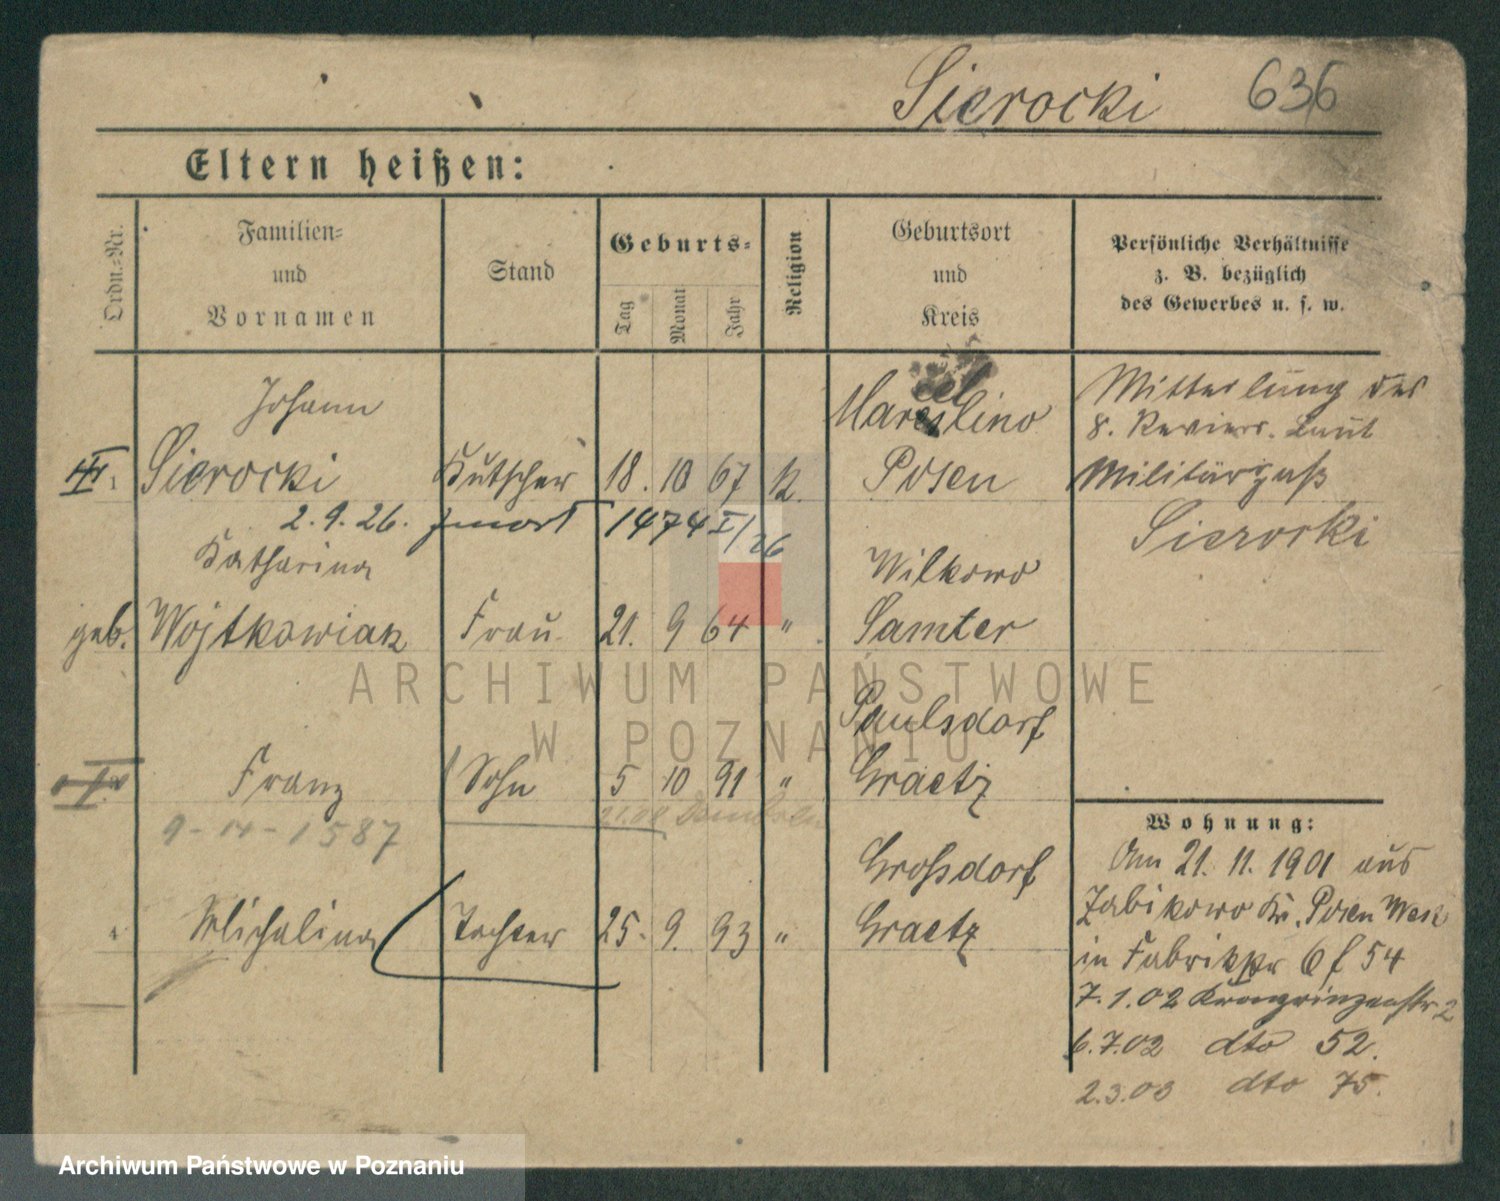 Sierocki 636
Eltern heißen:
Ordn.-Nr.
Familien-
und
Vornamen
Stand
Geburts-
Tag
Monat
Jahr
Religion
Geburtsort
und
Kreis
Persönliche Verhältnisse
z. B. bezüglich
des Gewerbes u. s. w.
Johann
Sierocki Kutscher 18. 10 67 k.
Marcellino
Posen
Mitteilung des
8. Reviers. Laut
Militärpaß
Sierocki
2.9.26. zmarł 1474 I/26
Katharina
geb. Wojtkowiak Frau 21. 9 64 "
Wilkowo
Samter
Paulsdorf
Franz Sohn 5 10 91 " Graetz
9-14-1587
Großdorf
Michalina Tochter 25. 9. 93 " Graetz
Wohnung:
Am 21. 11. 1901 aus
Zabikowo Kr. Posen West
in Fabrikstr 54
7.1.02 Kronprinzenstr 2
6.7.02 dto 52.
2.3.03 dto 75.
ARCHIWUM PAŃSTWOWE
W POZNANIU
Archiwum Państwowe w Poznaniu